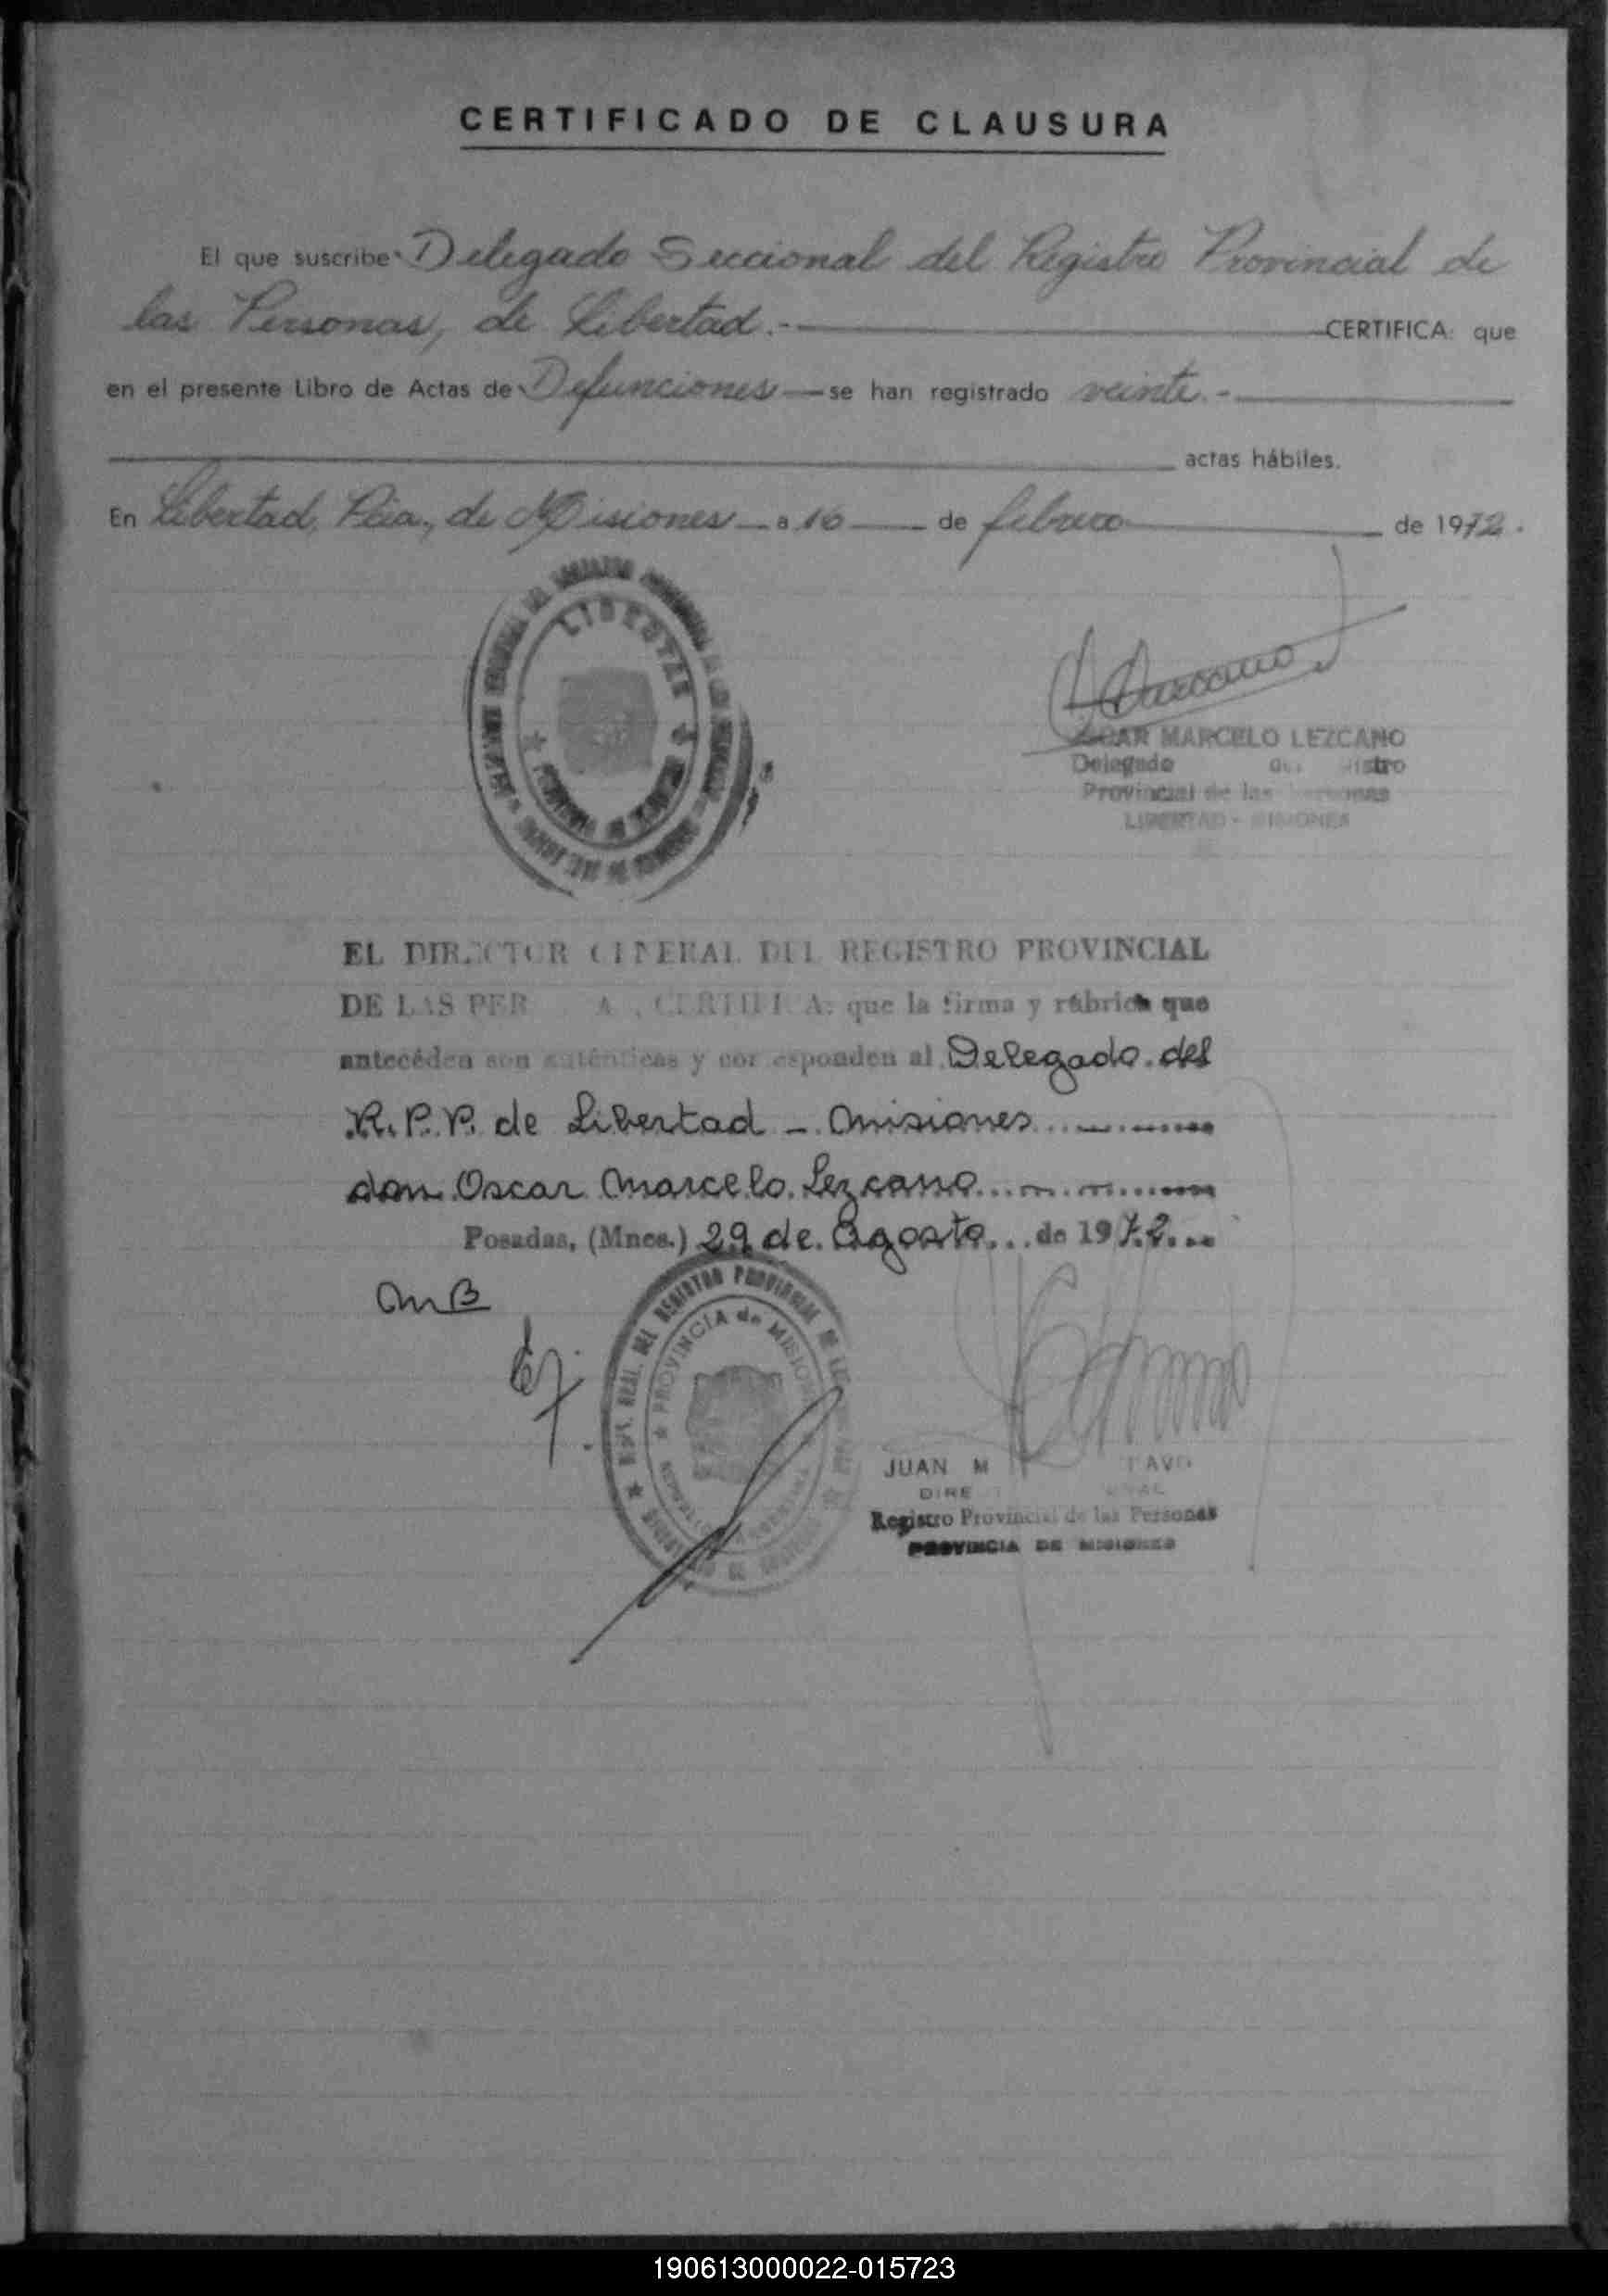 CERTIFICADO DE CLAUSURA
El que suscribe Delegado Seccional del Registro Provincial de
las Personas, de Libertad.- CERTIFICA: que
en el presente Libro de Actas de Defunciones se han registrado veinte.-
actas hábiles.
En Libertad, Pcia, de Misiones a 16 de febrero de 1972.
LIBERTAD
MARCELO LEZCANO
Delegado
Provincial de las Personas
LIBERTAD - MISIONES
EL DIRECTOR GENERAL DEL REGISTRO PROVINCIAL
DE LAS PER CERTIFICA: que la firma y rúbrica que
antecéden son auténticas y corresponden al Delegado del
R.P.P. de Libertad - Misiones
don Oscar Marcelo Lezcano
Posadas, (Mnes.) 29 de Agosto de 1972
MB
DEL REGISTRO PROVINCIAL DE
PROVINCIA de MISIONES
JUAN M
DIRE
Registro Provincial de las Personas
PROVINCIA DE MISIONES
190613000022-015723